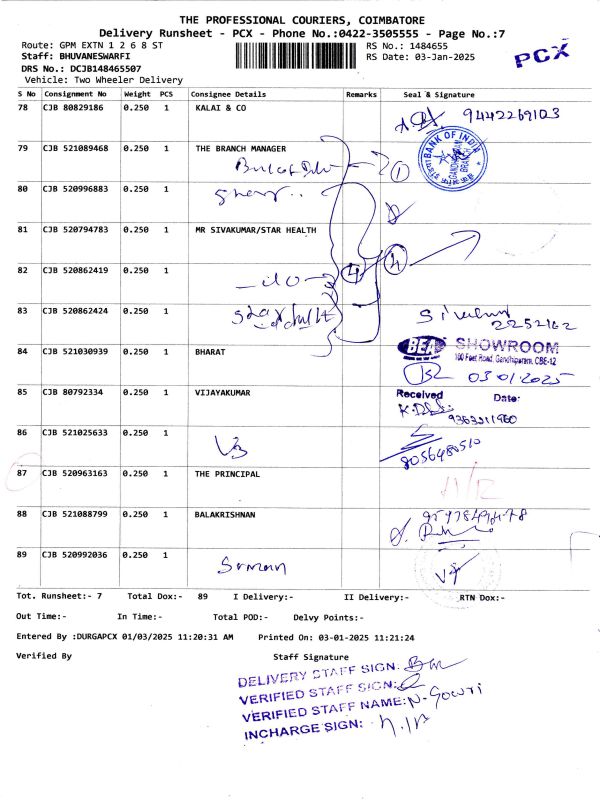 THE PROFESSIONAL COURIERS, COIMBATORE
Delivery Runsheet - PCX - Phone No.:0422-3505555 - Page No.:7
Route: GPM EXTN 1 2 6 8 ST
RS No.: 1484655
Staff: BHUVANESWARFI
RS Date: 03-Jan-2025
PCX
DRS No.: DCJB148465507
Vehicle: Two Wheeler Delivery
S No Consignment No Weight PCS Consignee Details Remarks Seal & Signature
78 CJB 80829186 0.250 1 KALAI & CO 9442269103
79 CJB 521089468 0.250 1 THE BRANCH MANAGER
BANK OF INDIA
BRANCH
1
80 CJB 520996883 0.250 1
81 CJB 520794783 0.250 1 MR SIVAKUMAR/STAR HEALTH
82 CJB 520862419 0.250 1 4 4
83 CJB 520862424 0.250 1
2252162
84 CJB 521030939 0.250 1 BHARAT
SHOWROOM
100 Feet Road, Gandhipuram, CBE-12
03/01/2025
85 CJB 80792334 0.250 1 VIJAYAKUMAR
Received Date:
9363211960
86 CJB 521025633 0.250 1
8056480510
87 CJB 520963163 0.250 1 THE PRINCIPAL
88 CJB 521088799 0.250 1 BALAKRISHNAN
89 CJB 520992036 0.250 1
Tot. Runsheet:- 7 Total Dox:- 89 I Delivery:- II Delivery:- RTN Dox:-
Out Time:- In Time:- Total POD:- Delvy Points:-
Entered By :DURGAPCX 01/03/2025 11:20:31 AM Printed On: 03-01-2025 11:21:24
Verified By Staff Signature
DELIVERY STAFF SIGN:
VERIFIED STAFF SIGN:
VERIFIED STAFF NAME: N-Gowri
INCHARGE SIGN: